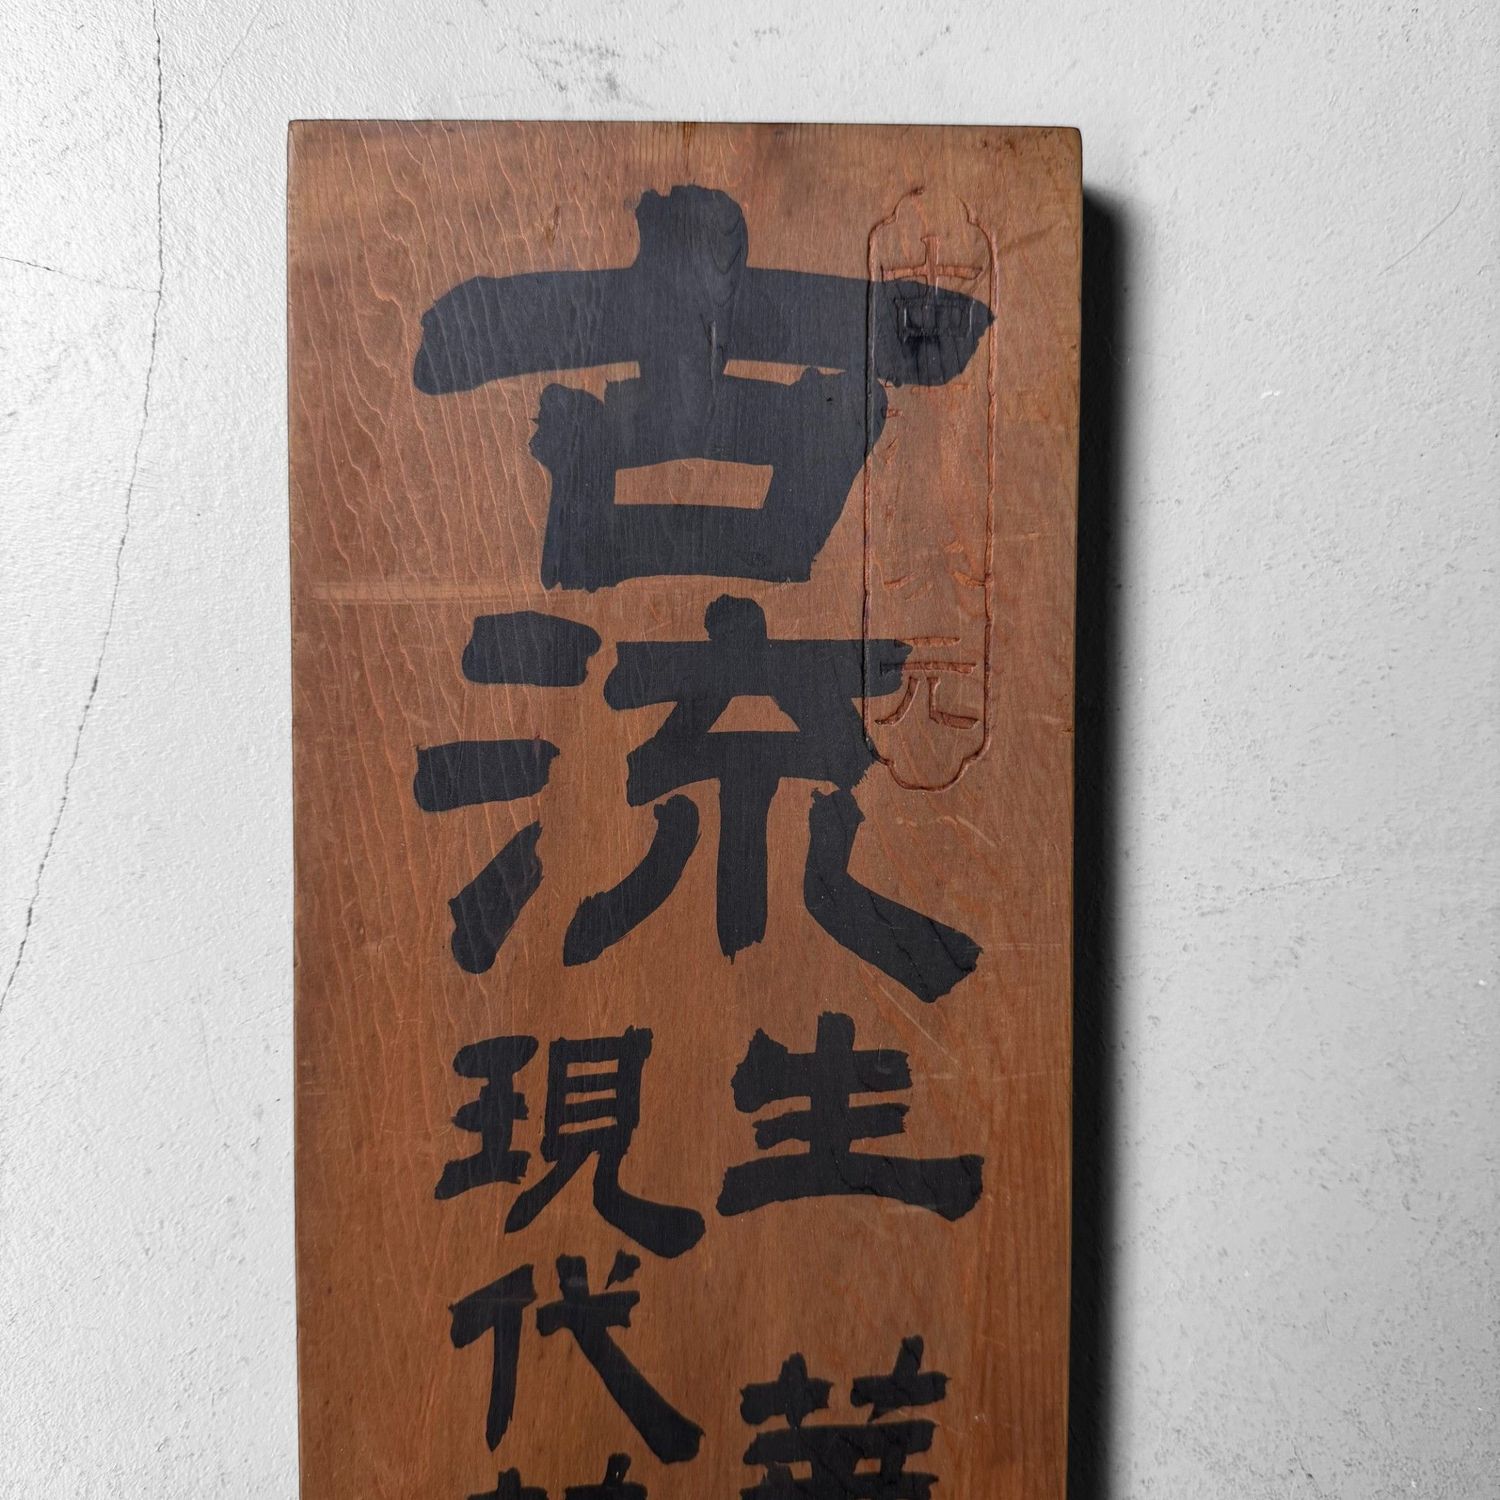 古流家元
古流
生華
現代